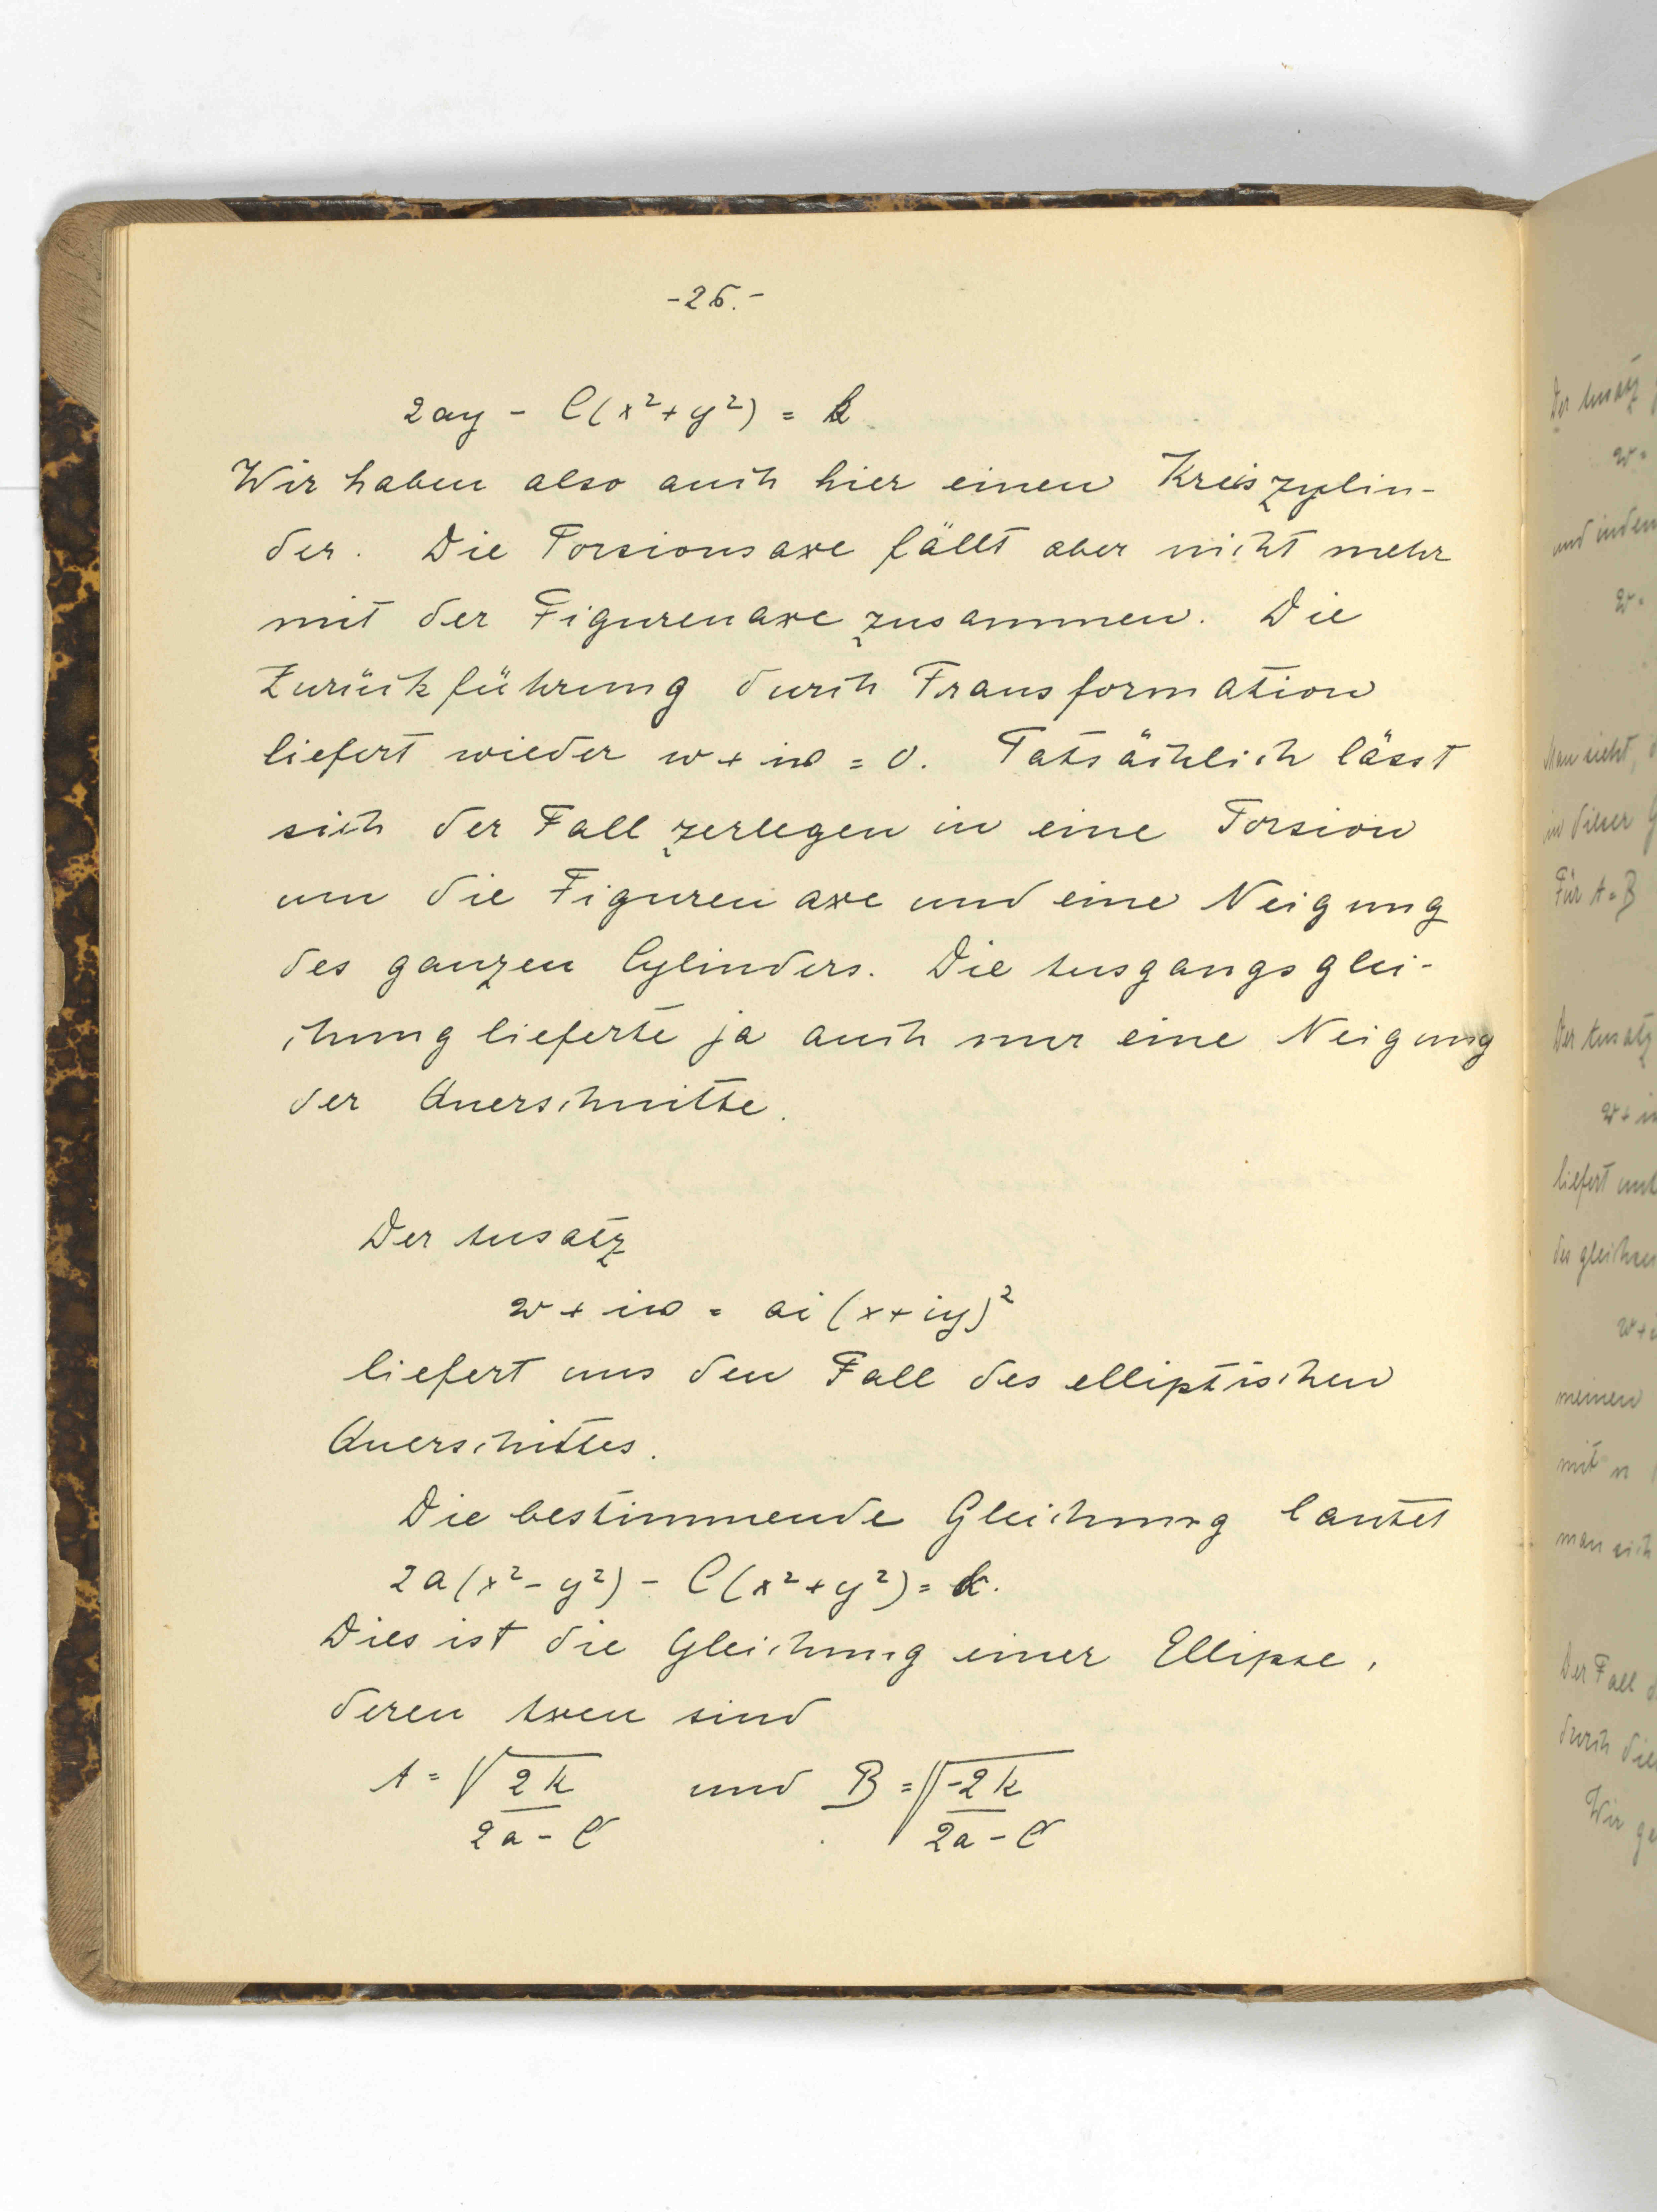 -26.-
2ay - C(x²+y²) = k
Wir haben also auch hier einen Kreiszylin-
der. Die Torsionsaxe fällt aber nicht mehr
mit der Figurenaxe zusammen. Die
Zurückführung durch Transformation
liefert wieder w + iω = 0. Tatsächlich lässt
sich der Fall zerlegen in eine Torsion
um die Figurenaxe und eine Neigung
des ganzen Cylinders. Die Ausgangsglei-
chung lieferte ja auch nur eine Neigung
der Querschnitte.
Der Ansatz
w + iω = ai(x+iy)²
liefert uns den Fall des elliptischen
Querschittes.
Die bestimmende Gleichung lautet
2a(x²-y²) - C(x²+y²) = k.
Dies ist die Gleichung einer Ellipse,
deren Axen sind
A = √(2k / 2a - C) und B = √(-2k / 2a - C)
Der Ansatz
w =
und indem
w =
Man sieht,
in dieser
Für A = B
Der Ansatz
liefert
meinen
mit n
man sich
Der Fall
durch
Wir